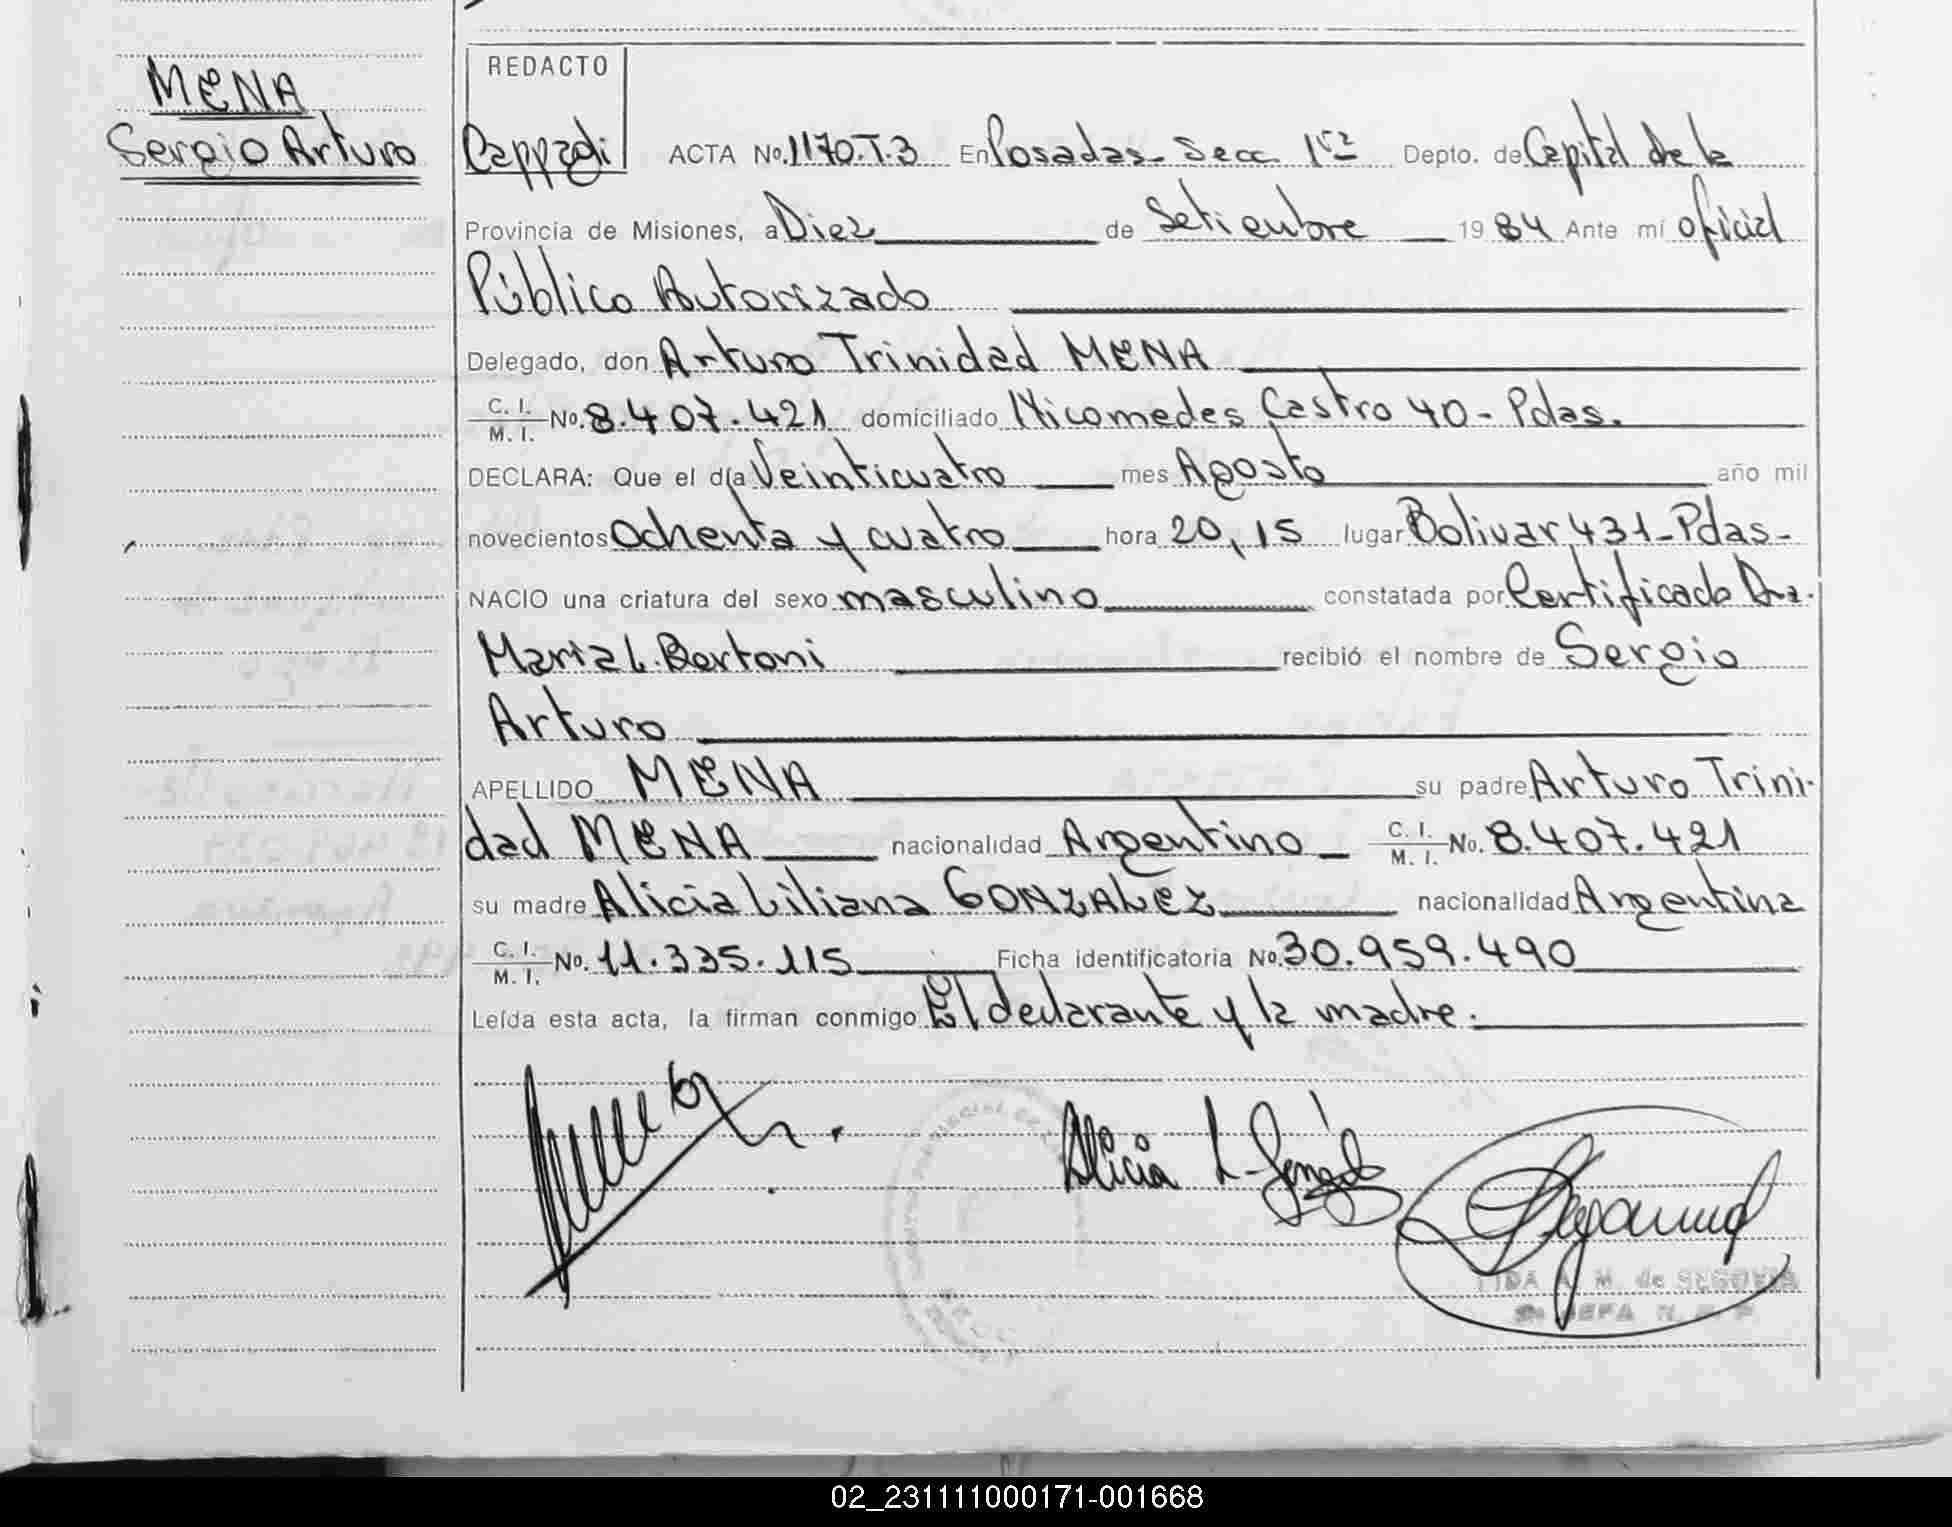 MENA
Sergio Arturo
REDACTO
Cappadi ACTA No. 1170.T.3 En Posadas - Secc. 1ra Depto. de Capital de la
Provincia de Misiones, a Diez de Setiembre 1984 Ante mí oficial
Público Autorizado
Delegado, don Arturo Trinidad MENA
C. I. / M. I. No. 8.407.421 domiciliado Nicomedes Castro 40 - Pdas.
DECLARA: Que el día Veinticuatro mes Agosto año mil
novecientos Ochenta y cuatro hora 20,15 lugar Bolivar 431 - Pdas -
NACIO una criatura del sexo masculino constatada por Certificado Dra.
Maria L. Bertoni recibió el nombre de Sergio
Arturo
APELLIDO MENA su padre Arturo Trini-
dad MENA nacionalidad Argentino C. I. / M. I. No. 8.407.421
su madre Alicia Liliana GONZALEZ nacionalidad Argentina
C. I. / M. I. No. 11.335.115 Ficha identificatoria No. 30.959.490
Leída esta acta, la firman conmigo El declarante y la madre.
Alicia L.
A. M. de SEGOVIA
02_231111000171-001668